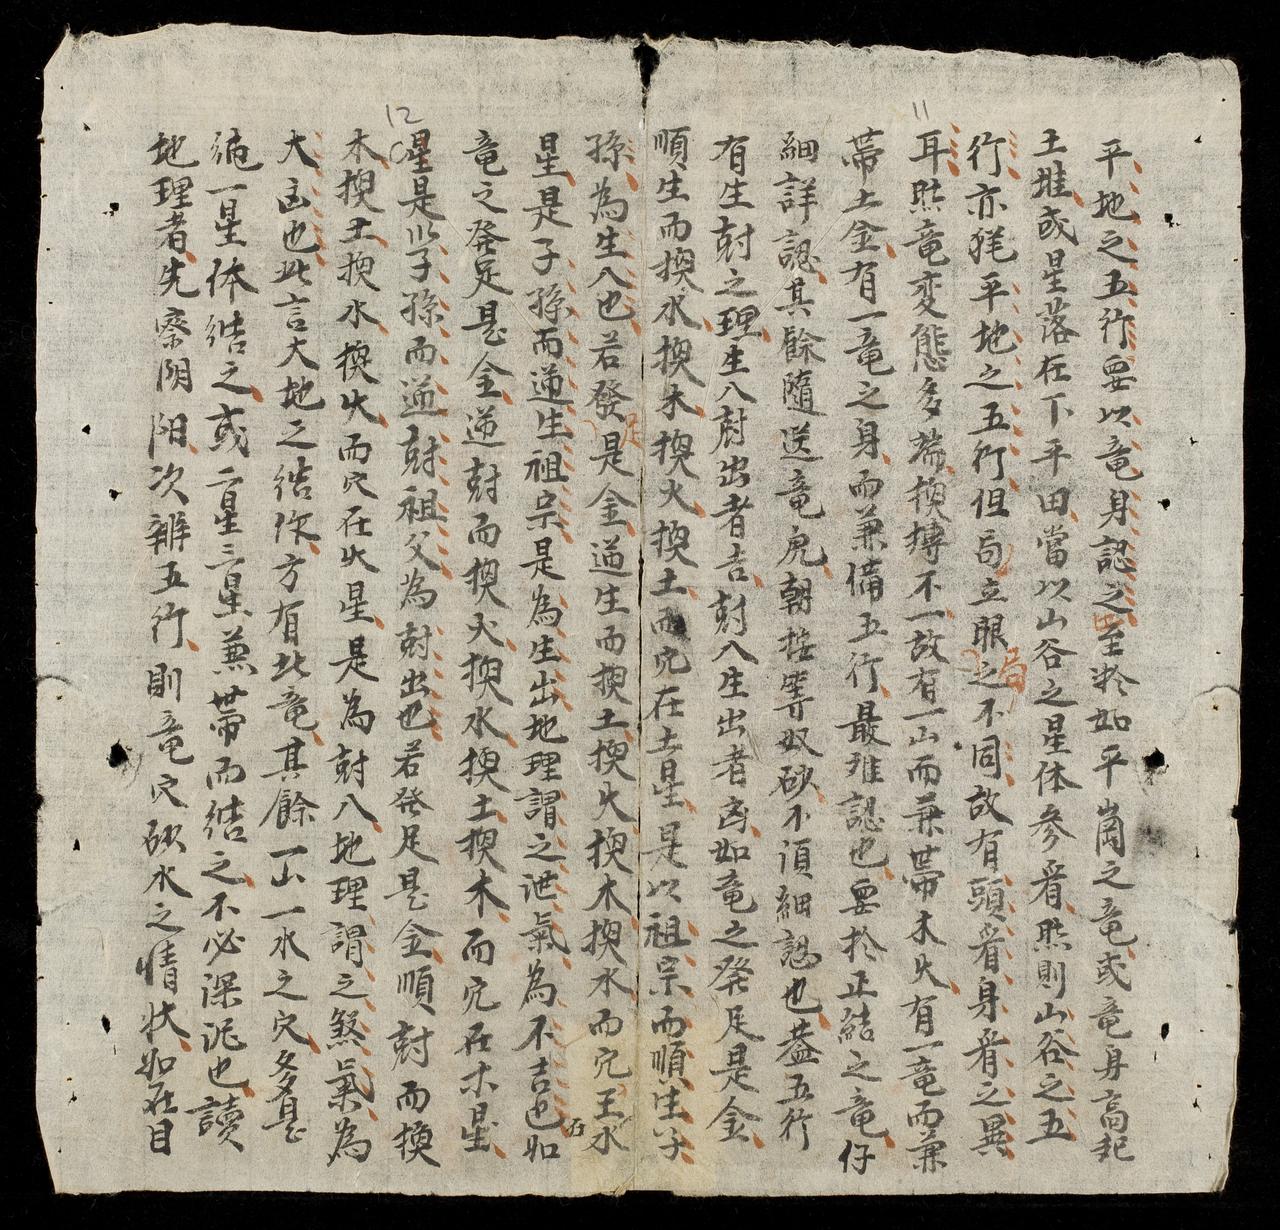 平地之五行要以竜身認之至於如平崗之竜或竜身高起
土堆或星落在下平田當以山谷之星体參看照則山谷之五
行亦猶平地之五行但局立眼之不同故有頭看身看之異
耳照竜変態多端換搏不一故有一山而兼帶木火有一竜而兼
帶土金有一竜之身而兼備五行最难認也要於正結之竜仔
細詳認其餘隨送竜虎朝按等奴砂不須細認也蓋五行
有生尅之理生入尅出者吉尅入生出者凶如竜之発足是金
順生而換水換木換火換土而穴在土星是以祖宗而順生子
孫為生入也若發足是金逆生而換土換火換木換水而穴王水
星是子孫而逆生祖宗是為生出地理謂之泄氣為不吉也如
竜之発足是金逆尅而換火換水換土換木而穴在木星
星是以子孫而逆尅祖父為尅出也若発足是金順尅而換
木換土換水換火而穴在火星是為尅入地理謂之煞氣為
大凶也此言大地之結作方有此竜其餘一山一水之穴多是
純一星体結之或二星三星兼帶而結之不必深泥也讀
地理者先察阴阳次辨五行則竜穴砂水之情状如在目
11
12
五